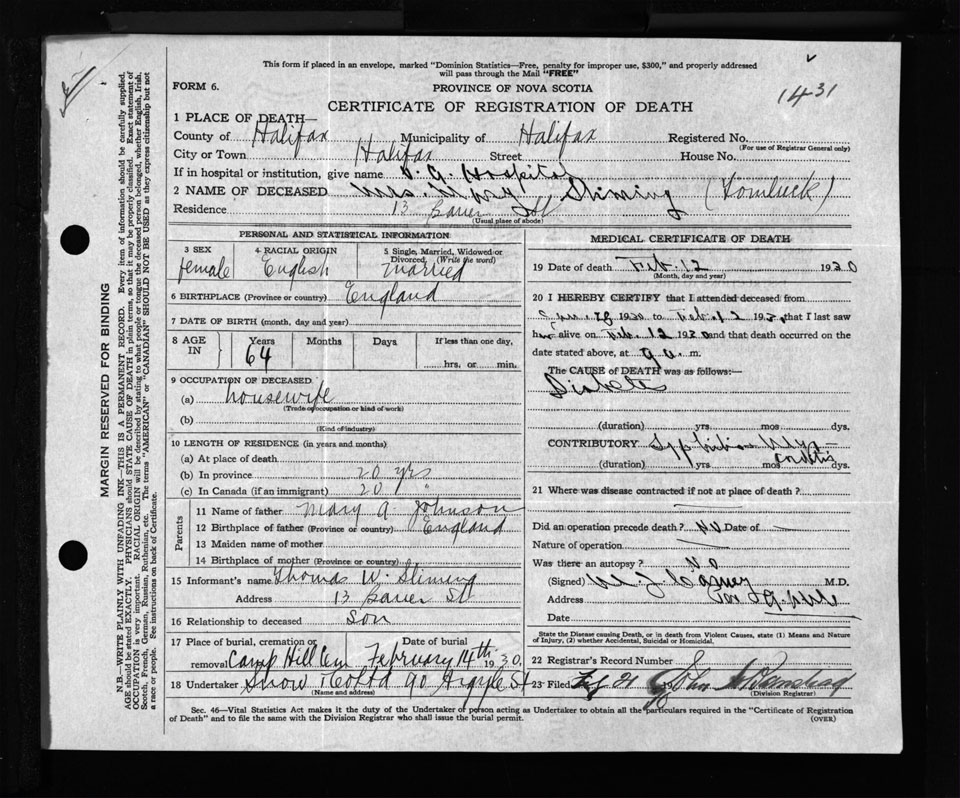 This form if placed in an envelope, marked "Dominion Statistics—Free, penalty for improper use, $300," and properly addressed
will pass through the Mail "FREE"
FORM 6. PROVINCE OF NOVA SCOTIA
1431
CERTIFICATE OF REGISTRATION OF DEATH
1 PLACE OF DEATH—
County of Halifax Municipality of Halifax Registered No.
(For use of Registrar General only)
City or Town Halifax Street House No.
If in hospital or institution, give name V. G. Hospital
2 NAME OF DECEASED Mrs. Mary Sliming
Residence 13 Bauer St
(Usual place of abode)
PERSONAL AND STATISTICAL INFORMATION
3 SEX female
4 RACIAL ORIGIN English
5 Single, Married, Widowed or Divorced, (Write the word) married
6 BIRTHPLACE (Province or country) England
7 DATE OF BIRTH (month, day and year)
8 AGE IN Years Months Days If less than one day,
64 hrs. or min.
9 OCCUPATION OF DECEASED
(a) housewife
(Trade, occupation or kind of work)
(b)
(Kind of industry)
10 LENGTH OF RESIDENCE (in years and months)
(a) At place of death
(b) In province 20 yrs
(c) In Canada (if an immigrant) 20 "
Parents
11 Name of father Mary A. Johnson
12 Birthplace of father (Province or country) England
13 Maiden name of mother
14 Birthplace of mother (Province or country)
15 Informant's name Thomas W. Sliming
Address 13 Bauer St
16 Relationship to deceased son
17 Place of burial, cremation or removal Camp Hill Cem Date of burial February 14th 1930
18 Undertaker Snow & Co Ltd 90 Argyle St
(Name and address)
MEDICAL CERTIFICATE OF DEATH
19 Date of death Feb. 12 1930
(Month, day and year)
20 I HEREBY CERTIFY that I attended deceased from
28 1930 to Feb. 12 1930, that I last saw
her alive on Feb. 12 1930 and that death occurred on the
date stated above, at 9 a. m.
The CAUSE of DEATH was as follows:—
Diabetes
(duration) yrs. mos. dys.
CONTRIBUTORY
(duration) yrs. mos. dys.
21 Where was disease contracted if not at place of death?
Did an operation precede death? No Date of
Nature of operation
Was there an autopsy? No
(Signed) M.D.
Address
Date
State the Disease causing Death, or in death from Violent Causes, state (1) Means and Nature
of Injury, (2) whether Accidental, Suicidal or Homicidal.
22 Registrar's Record Number
23 Filed 21 John
(Division Registrar)
Sec. 46—Vital Statistics Act makes it the duty of the Undertaker or person acting as Undertaker to obtain all the particulars required in the "Certificate of Registration
of Death" and to file the same with the Division Registrar who shall issue the burial permit. (OVER)
MARGIN RESERVED FOR BINDING
N.B.—WRITE PLAINLY WITH UNFADING INK—THIS IS A PERMANENT RECORD. Every item of information should be carefully supplied.
AGE should be stated EXACTLY. PHYSICIANS should STATE CAUSE OF DEATH in plain terms, so that it may be properly classified. Exact statement of
OCCUPATION is very important. RACIAL ORIGIN will be described by stating to what people or tongue the deceased person belonged, whether English, Irish,
Scotch, French, German, Russian, Ruthenian, etc. The terms "AMERICAN" or "CANADIAN" SHOULD NOT BE USED as they express citizenship but not
a race or people. See instructions on back of Certificate.